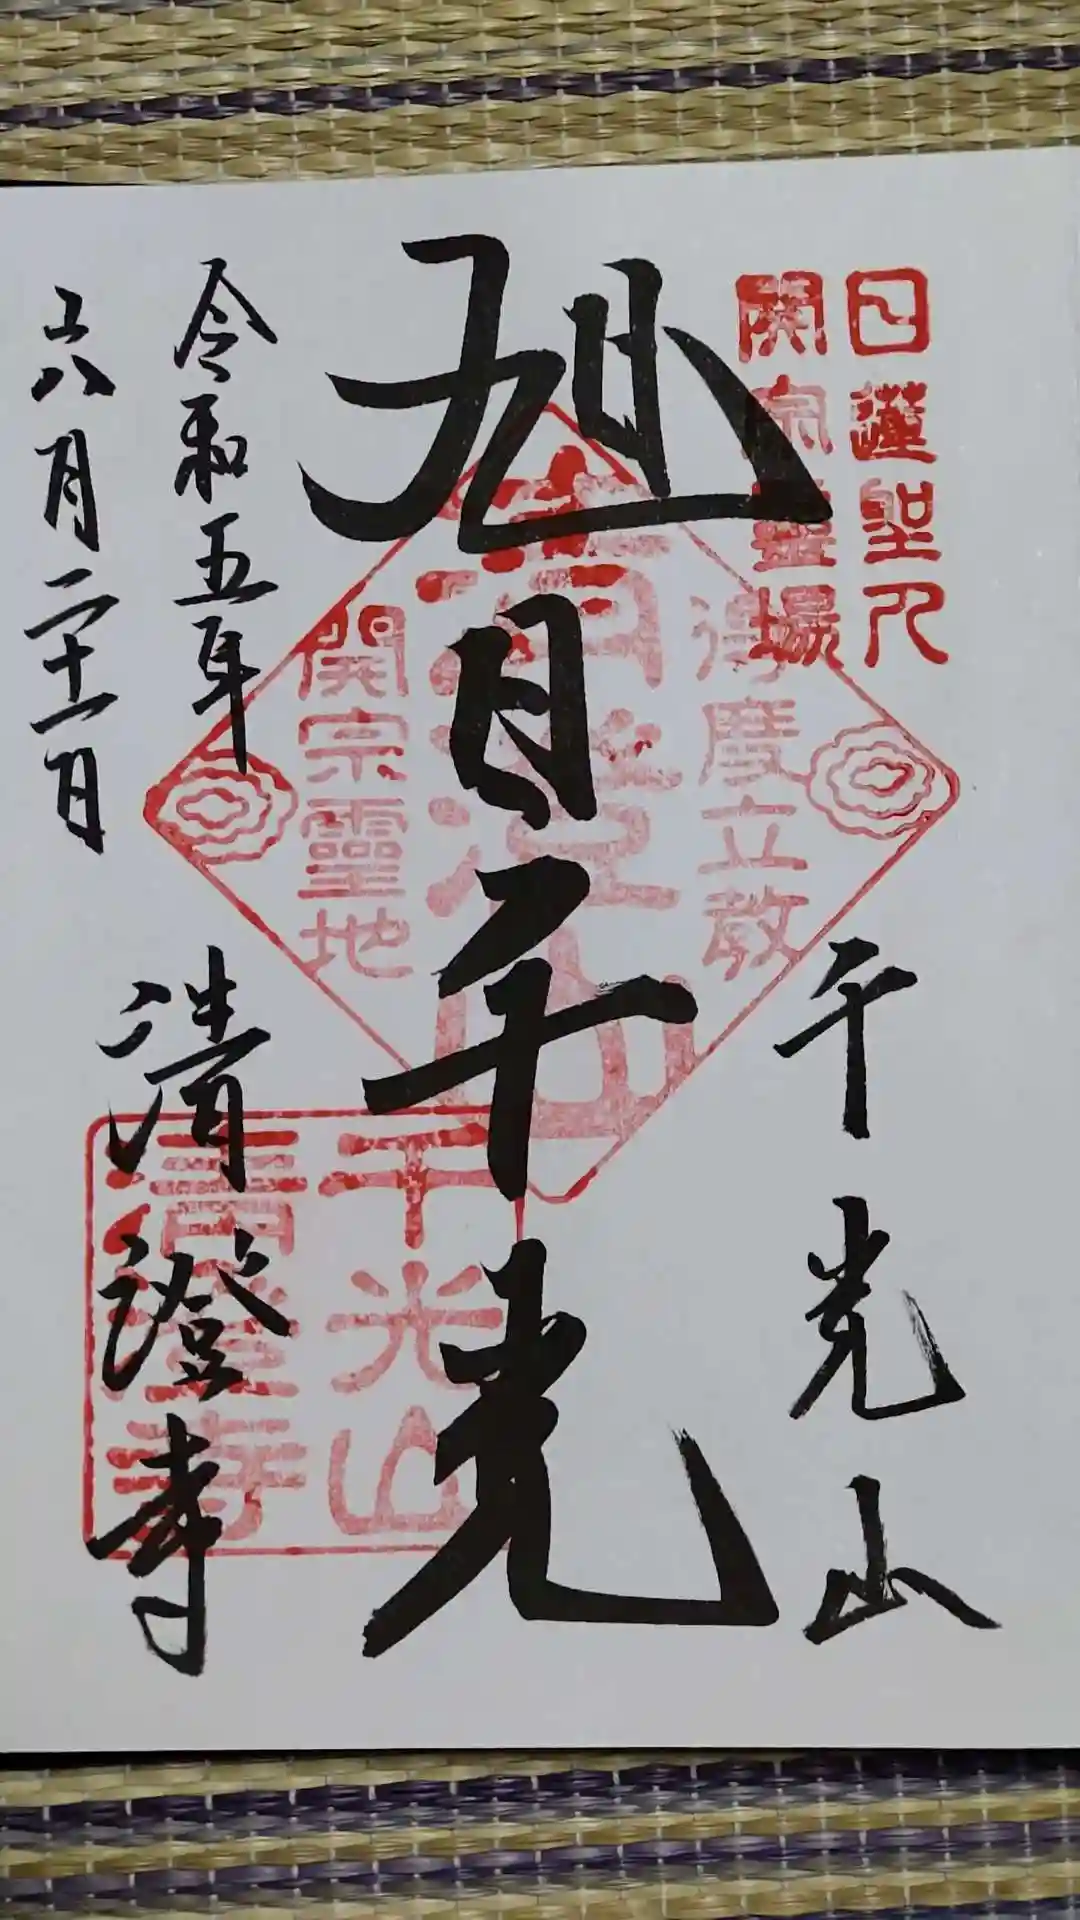 日蓮聖人
開宗霊場
千光山
得度立教
清澄山
開宗靈地
旭日千光
令和五年
六月二十一日
千光山
清澄寺
清澄寺